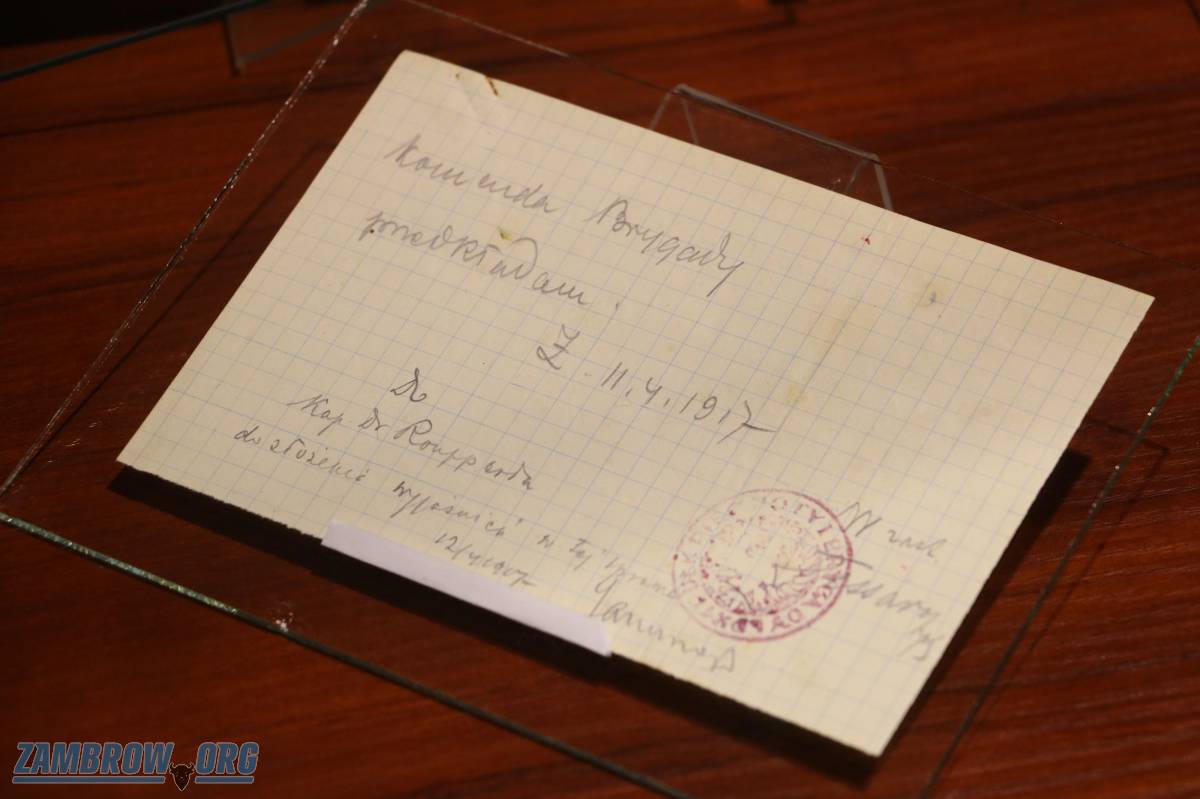 Komenda Brygady
przedkładam.
Z. 11.4.1917
Do
Kap Dr Roupperta
do złożenia wyjaśnień w tej sprawie
12/4 1917
W zast.
ZAMBROW.ORG